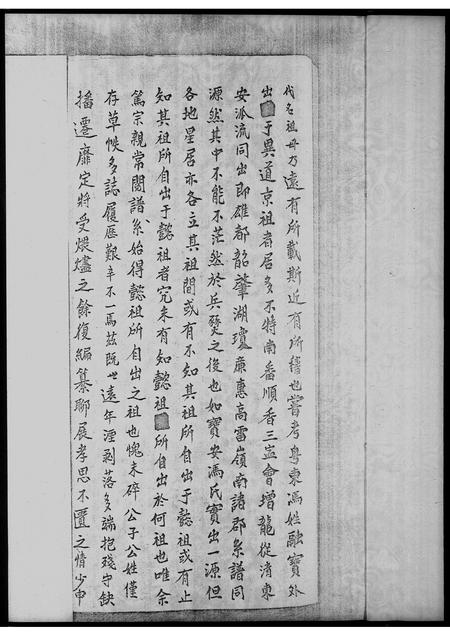 代名祖毋乃遠有所載斯近有所稽也嘗考粵東馮姓融寶外
出于異道京祖者居多不特南番順香三益會增龍從清東
安派流同出即雄都韶肇湖瓊廉惠高雷嶺南諸郡系譜同
源然其中不能不茫然於兵燹之後也如寶安馮氏實出一源但
各地星居亦各立其祖間或有不知其祖所自出于懿祖或有止
知其祖所自出于懿祖者究未有知懿祖所自出於何祖也唯余
篤宗親常閱譜系始得懿祖所自出之祖也愧未碎公子公姓僅
存草帙多誌履歷艱辛不一焉茲既世遠年湮剥落多端抱殘守缺
播遷靡定將受煨燼之餘復編纂聊展孝思不匱之情少申